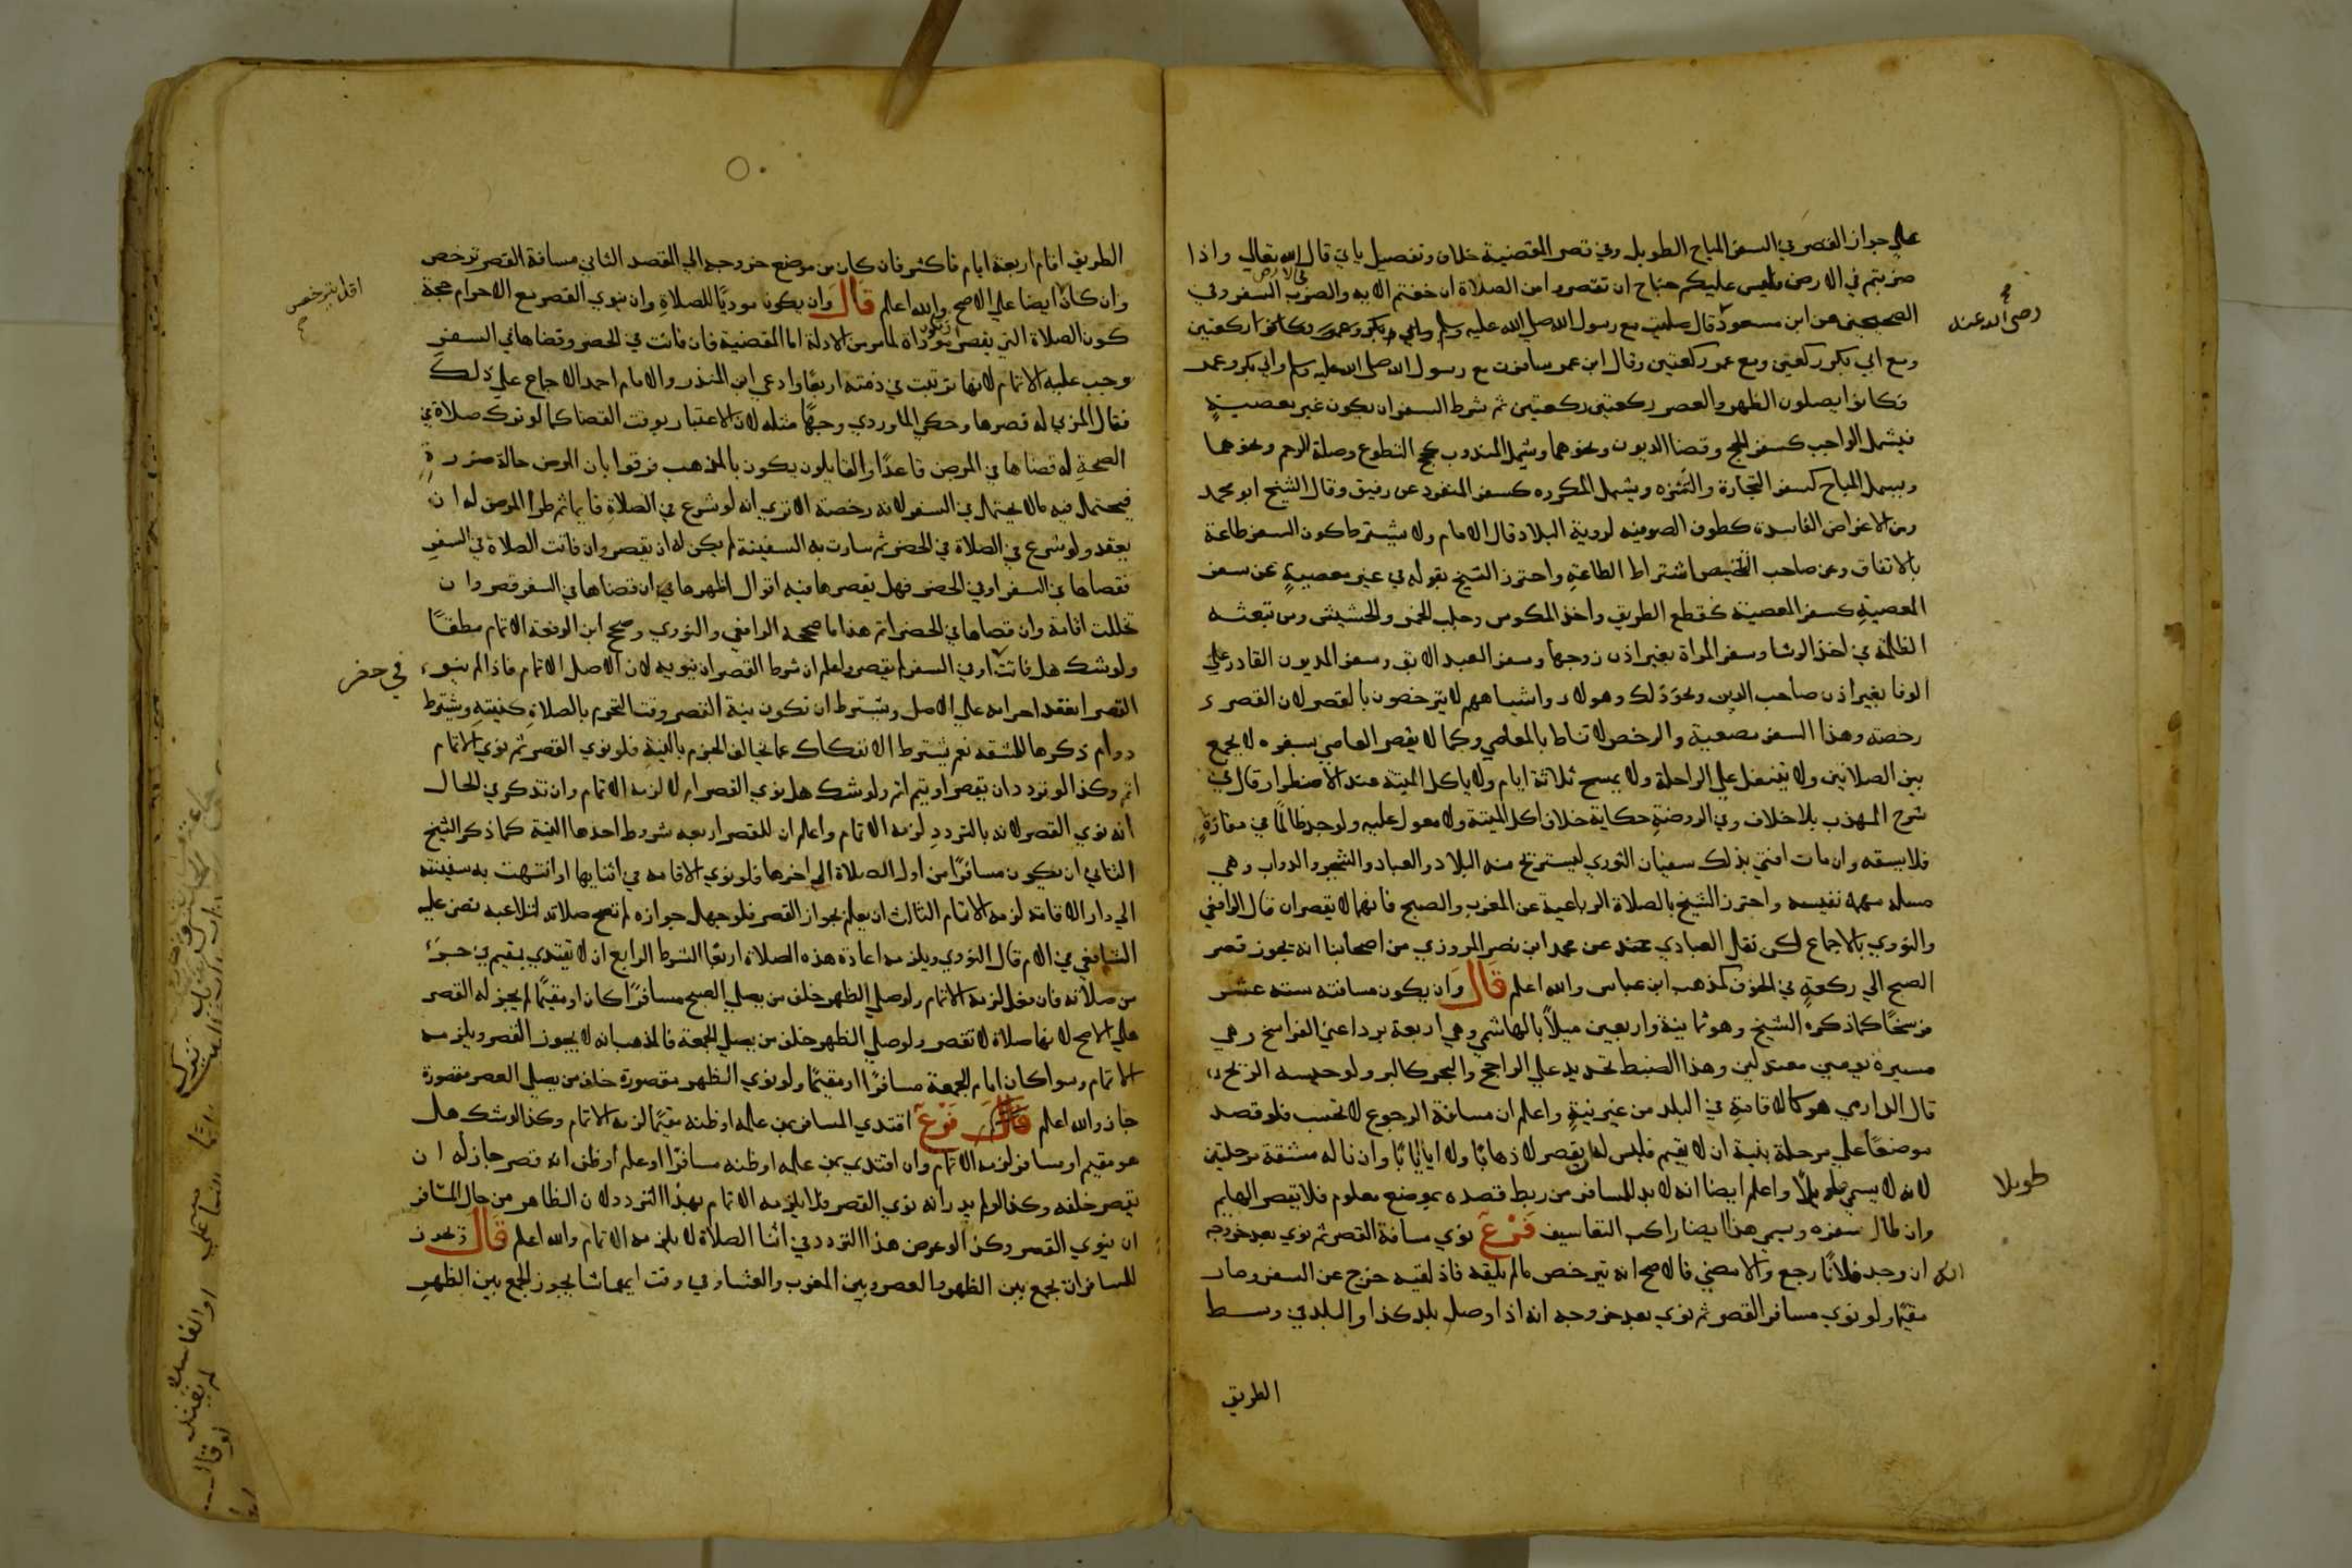 علي جواز القصر في السفر المباح الطويل وفي قصر المقضية خلاف وتفصيل ياتي قال الله تعالي واذا
ضربتم في الارض فليس عليكم جناح ان تقصروا من الصلاة ان خفتم الايه والضرب في الارض السفر وفي
الصحيحين عن ابن مسعود قال صليت مع رسول الله صلي الله عليه وسلم وابي بكر وعمر فكانوا ركعتين
رضي الله عنه صح
ومع ابي بكر ركعتين ومع عمر ركعتين وقال ابن عمر سافرت مع رسول الله صلى الله عليه وسلم وابي بكر وعمر
فكانوا يصلون الظهر والعصر ركعتين ركعتين ثم شرط السفر ان يكون غير معصية
فيشمل الواجب كسفر الحج وقضا الديون ونحوهما ويشمل المندوب كحج التطوع وصلة الرحم ونحوهما
ويشمل المباح كسفر التجارة والتنزه ويشمل المكروه كسفر المنفرد عن رفيق وقال الشيخ ابو محمد
ومن الاغراض الفاسدة كطوف الصوفيه لروية البلاد قال الامام ولا يشترط كون السفر طاعة
بالاتفاق وعن صاحب التلخيص اشتراط الطاعة واحترز الشيخ بقوله في غير معصية عن سفر
المعصية كسفر المعصية كقطع الطريق واخذ المكوس وجلب الخمر والحشيش ومن تبعثه
الظلمة في اخذ الرشا وسفر المراة بغير اذن زوجها وسفر العبد الابق وسفر المديون القادر علي
الوفا بغير اذن صاحب الدين ونحو ذلك وهولاء واشباههم لا يترخصون بالقصر لان القصر
رخصة وهذا السفر معصية والرخص لا تناط بالمعاصي وكما لا يقصر العاصي بسفره لا يجمع
بين الصلاتين ولا يتنفل علي الراحلة ولا يمسح ثلاثة ايام ولا ياكل الميتة عند الاضطرار قال في
شرح المهذب بلا خلاف وفي الروضة حكاية خلاف اكل الميتة ولا معول عليه ولو وجد ظالما في مفازة
فلا يسقه وان مات افتي بذلك سفيان الثوري ليستريح منه البلاد والعباد والشجر والدواب وهي
مسله مهمه نفيسه واحترز الشيخ بالصلاة الرباعية عن المغرب والصبح فانهما لا يقصران قال الرافعي
والنووي بالاجماع لكن نقل العبادي عن محمد ابن نصر المروزي من اصحابنا انه يجوز قصر
الصبح الي ركعة في الخوف كمذهب ابن عباس والله اعلم قال وان يكون مسافته ستة عشر
فرسخا كما ذكره الشيخ وهو ثمانية واربعين ميلا بالهاشمي وهي اربعة برد اعني الفراسخ وهي
مسيرة يومين معتدلين وهذا الضبط تحديد علي الراجح والبحر كالبر ولو حبسه الريح
قال الدارمي هو كالاقامة في البلد من غير نية واعلم ان مسافة الرجوع لا تحسب فلو قصد
موضعا علي مرحلة بنية ان لا يقيم فليس له ان يقصر لا ذهابا ولا ايابا وان ناله مشقة مرحلتين
لانه لا يسمي طويلا واعلم ايضا انه لا بد للمسافر من ربط قصده بموضع معلوم فلا يقصر الهايم
طويلا
وان طال سفره ويسمي هذا ايضا راكب التعاسيف فرع نوي مسافة القصر ثم نوي بعد خروجه
انه ان وجد فلانا رجع والا مضي فالاصح انه يترخص مالم يلقه فاذا لقيه خرج عن السفر وصار
مقيما ولو نوي مسافر القصر ثم نوي بعد خروجه انه اذا وصل بلد كذا والبلد في وسط
الطريق
الطريق اقام اربعة ايام فاكثر فان كان من موضع خروجه الي القصد الثاني مسافة القصر ترخص
وان كان ايضا علي الاصح والله اعلم قال وان يكون موديا للصلاة وان ينوي القصر مع الاحرام حجة
اقل يترخص صح
كون الصلاة التي يقصر تكون موداة لما مر من الادلة اما المقضية فان فاتت في الحضر وقضاها في السفر
وجب عليه الاتمام لانها ترتبت في ذمته اربعا وادعي ابن المنذر والامام احمد الاجماع علي ذلك
فقال المزني له قصرها وحكي الماوردي وجها مثله لان الاعتبار بوقت القضا كما لو ترك صلاة في
الصحة له قضاها في المرض قاعدا والقايلون يكون بالمذهب فرقوا بان المرض حالة ضرورة
فيحتمل فيه مالا يحتمل في السفر لانه رخصة الا تري انه لو شرع في الصلاة قايما ثم طرا المرض له ان
يقعد ولو شرع في الصلاة في الحضر ثم سارت به السفينة لم يكن له ان يقصر وان فاتت الصلاة في السفر
فقضاها في السفر او في الحضر فهل يقصرها فيه اقوال اظهرها ان قضاها في السفر قصر وان
تخللت اقامة وان قضاها في الحضر اتم هذا ما صححه الرافعي والنووي وصحح ابن الرفعة الاتمام مطلقا
ولو شك هل فاتت او في السفر لم يقصر واعلم ان شرط القصر ان ينويه لان الاصل الاتمام فاذا لم ينو
في حضر
القصر انعقد احرامه علي الاصل ويشترط ان تكون نية القصر وقت التحرم بالصلاة كنيته ويشترط
دوام ذكرها للمشقه نعم يشترط الانفكاك عما يخالف الجزم بالنية فلو نوي القصر ثم نوي الاتمام
اتم وكذا لو تردد ان يقصر او يتم اتم ولو شك هل نوي القصر ام لا لزمه الاتمام وان تذكر في الحال
انه نوي القصر لانه بالتردد لزمه الاتمام واعلم ان للقصر اربعه شروط احدها النية كما ذكر الشيخ
الثاني ان يكون مسافرا من اول الصلاة الي اخرها فلو نوي الاقامه في اثنايها او انتهت به سفينته
الي دار الاقامة لزمه الاتمام الثالث ان يعلم بجواز القصر فلو جهل جوازه لم تصح صلاته لتلاعبه نص عليه
الشافعي في الام قال النووي ويلزمه اعادة هذه الصلاة اربعا الشرط الرابع ان لا يقتدي بمقيم في جزء
من صلاته فان فعل لزمه الاتمام ولو صلي الظهر خلف من يصلي الصبح مسافرا كان او مقيما لم يجز له القصر
علي الاصح لانها صلاة لا تقصر ولو صلي الظهر خلف من يصلي الجمعة فالمذهب انه لا يجوز القصر ويلزمه
الاتمام وسوا كان امام الجمعة مسافرا او مقيما ولو نوي الظهر مقصورة خلف من يصلي العصر مقصورة
جاز والله اعلم فرع اقتدي المسافر بمن علمه او ظنه مقيما لزمه الاتمام وكذا لو شك هل
هو مقيم او مسافر لزمه الاتمام وان اقتدي بمن علمه او ظنه مسافرا او علم او ظن انه قصر جاز له ان
يقصر خلفه وكذا لو لم يدر انه نوي القصر فلا يلزمه الاتمام بهذا التردد لان الظاهر من حال المسافر
ان ينوي القصر وكذا لو عرض هذا التردد في اثنا الصلاة لا يلزمه الاتمام والله اعلم قال ويجوز
للمسافر ان يجمع بين الظهر والعصر وبين المغرب والعشا وفي وقت ايهما شا يجوز الجمع بين الظهر